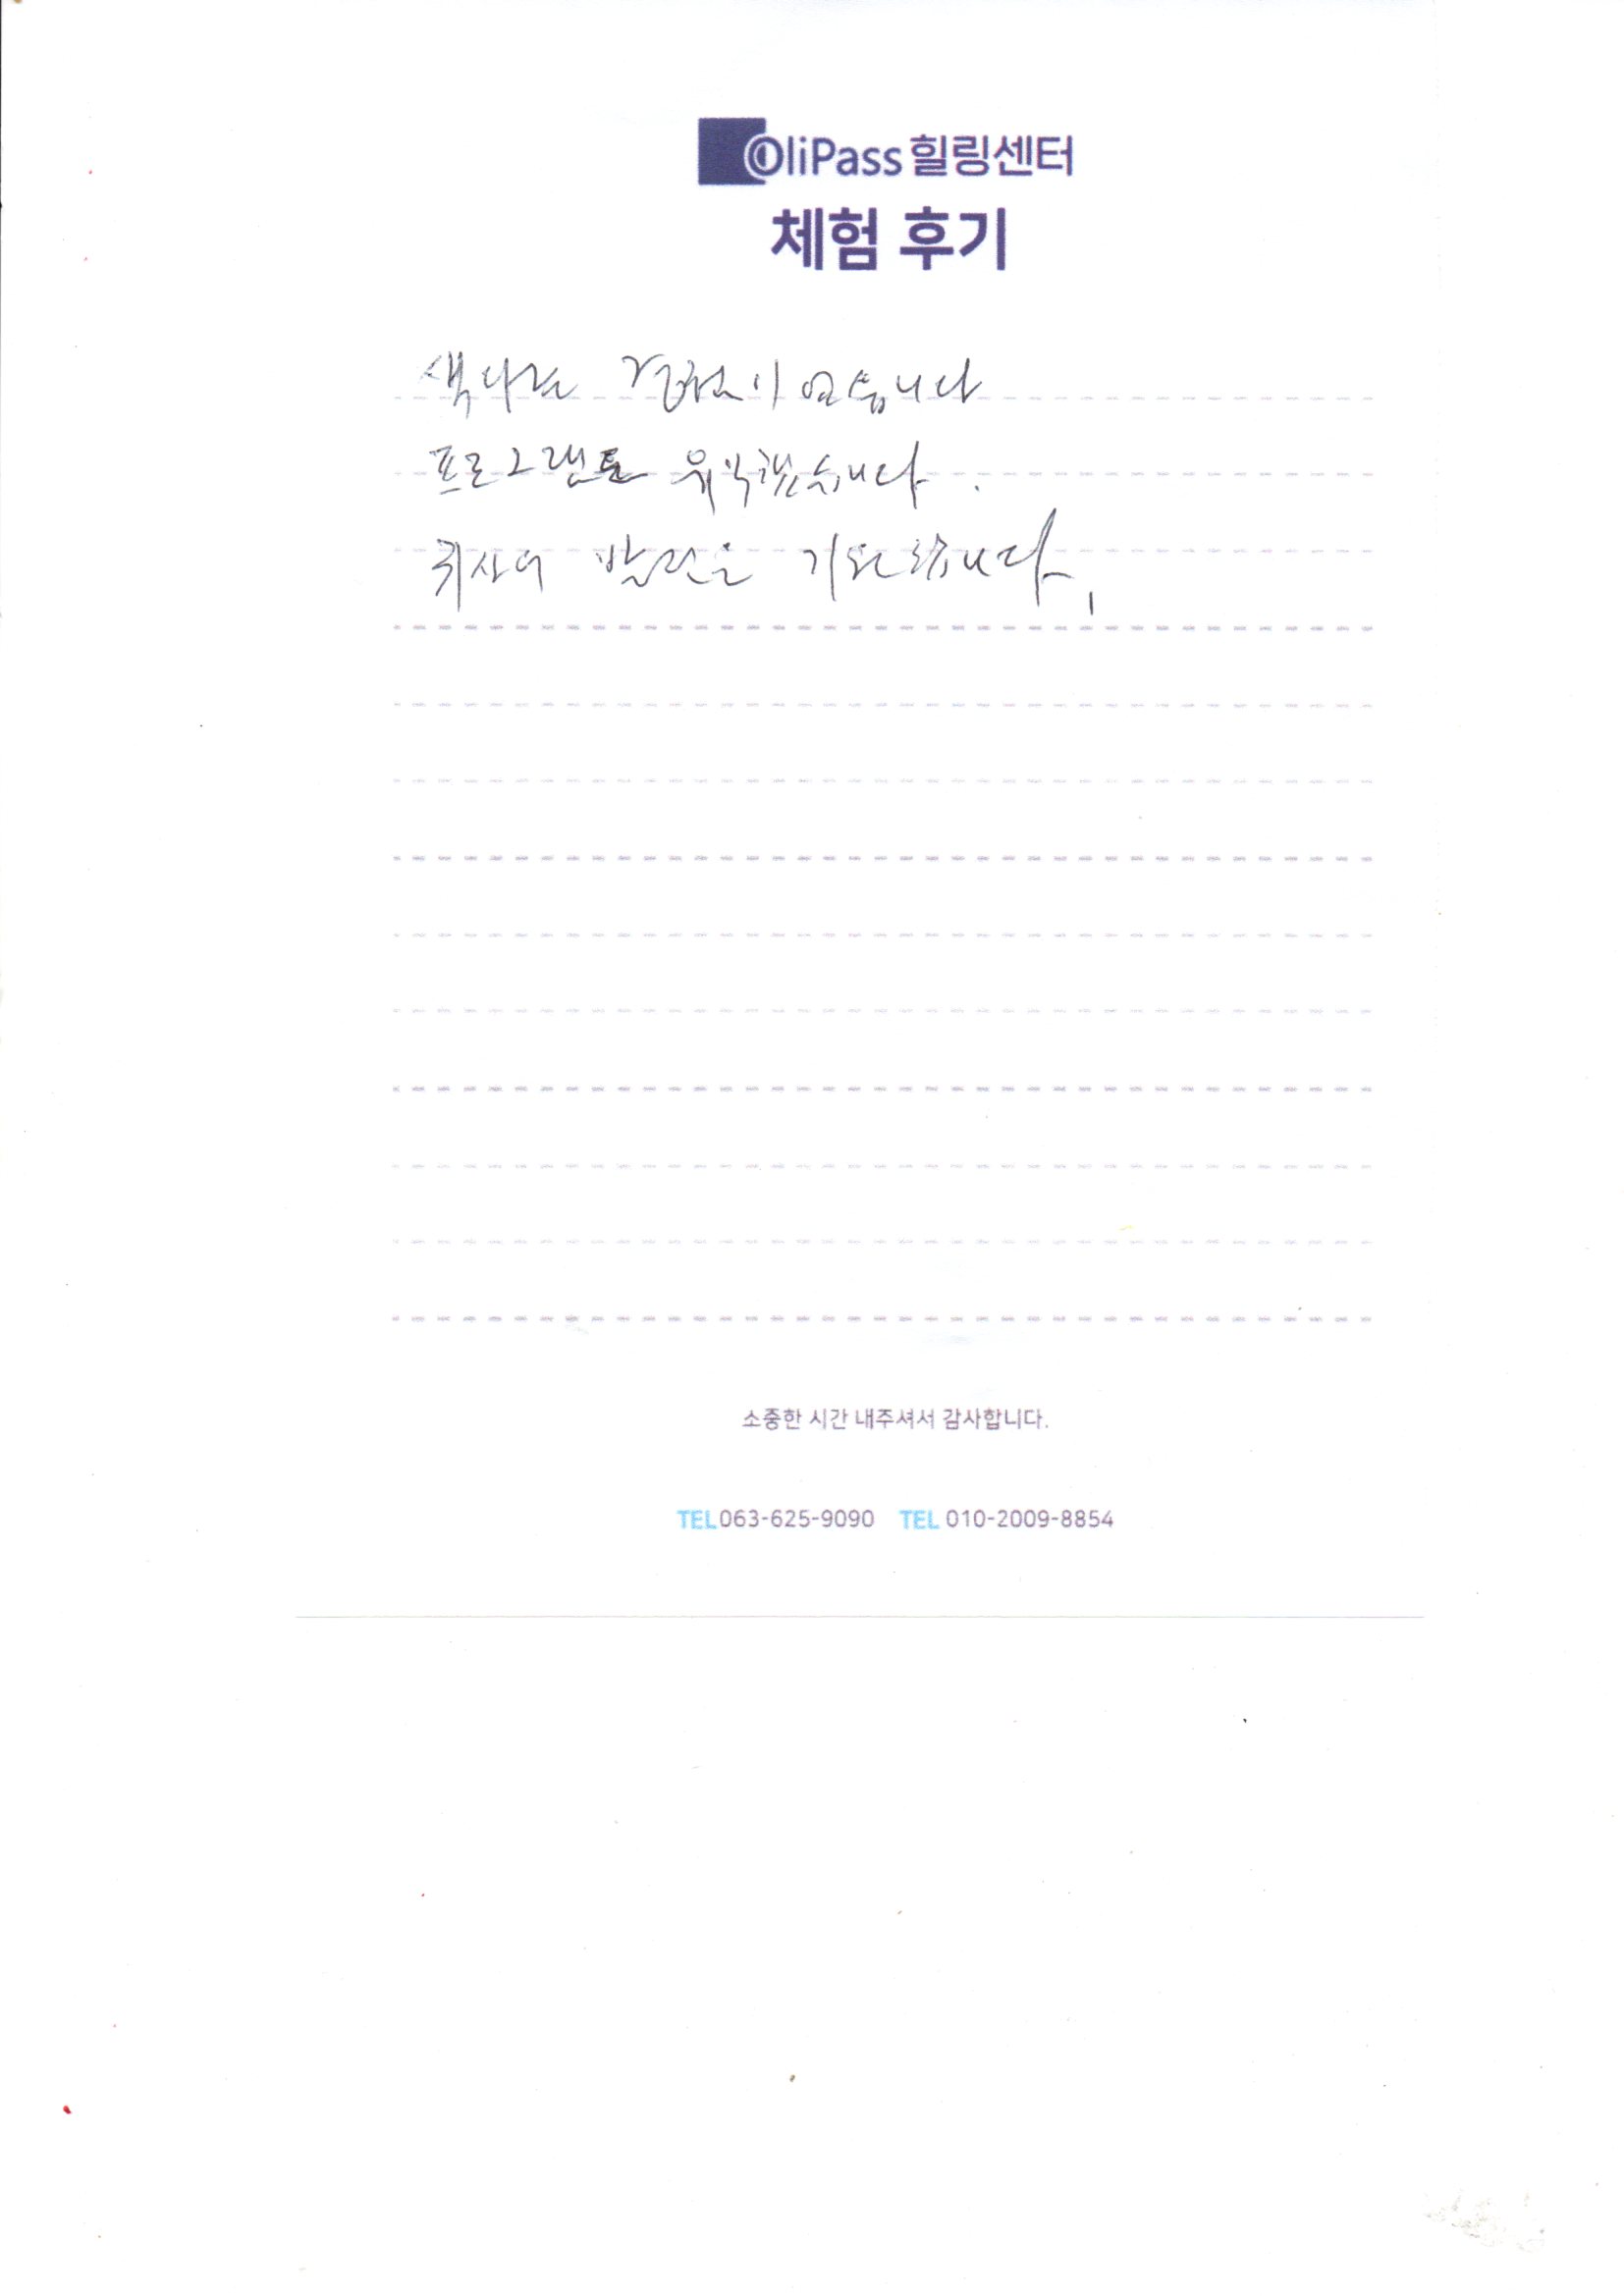 OliPass 힐링센터
체험 후기
색다른 경험이었습니다
프로그램도 유익했습니다.
귀사의 발전을 기원합니다.
소중한 시간 내주셔서 감사합니다.
TEL 063-625-9090 TEL 010-2009-8854